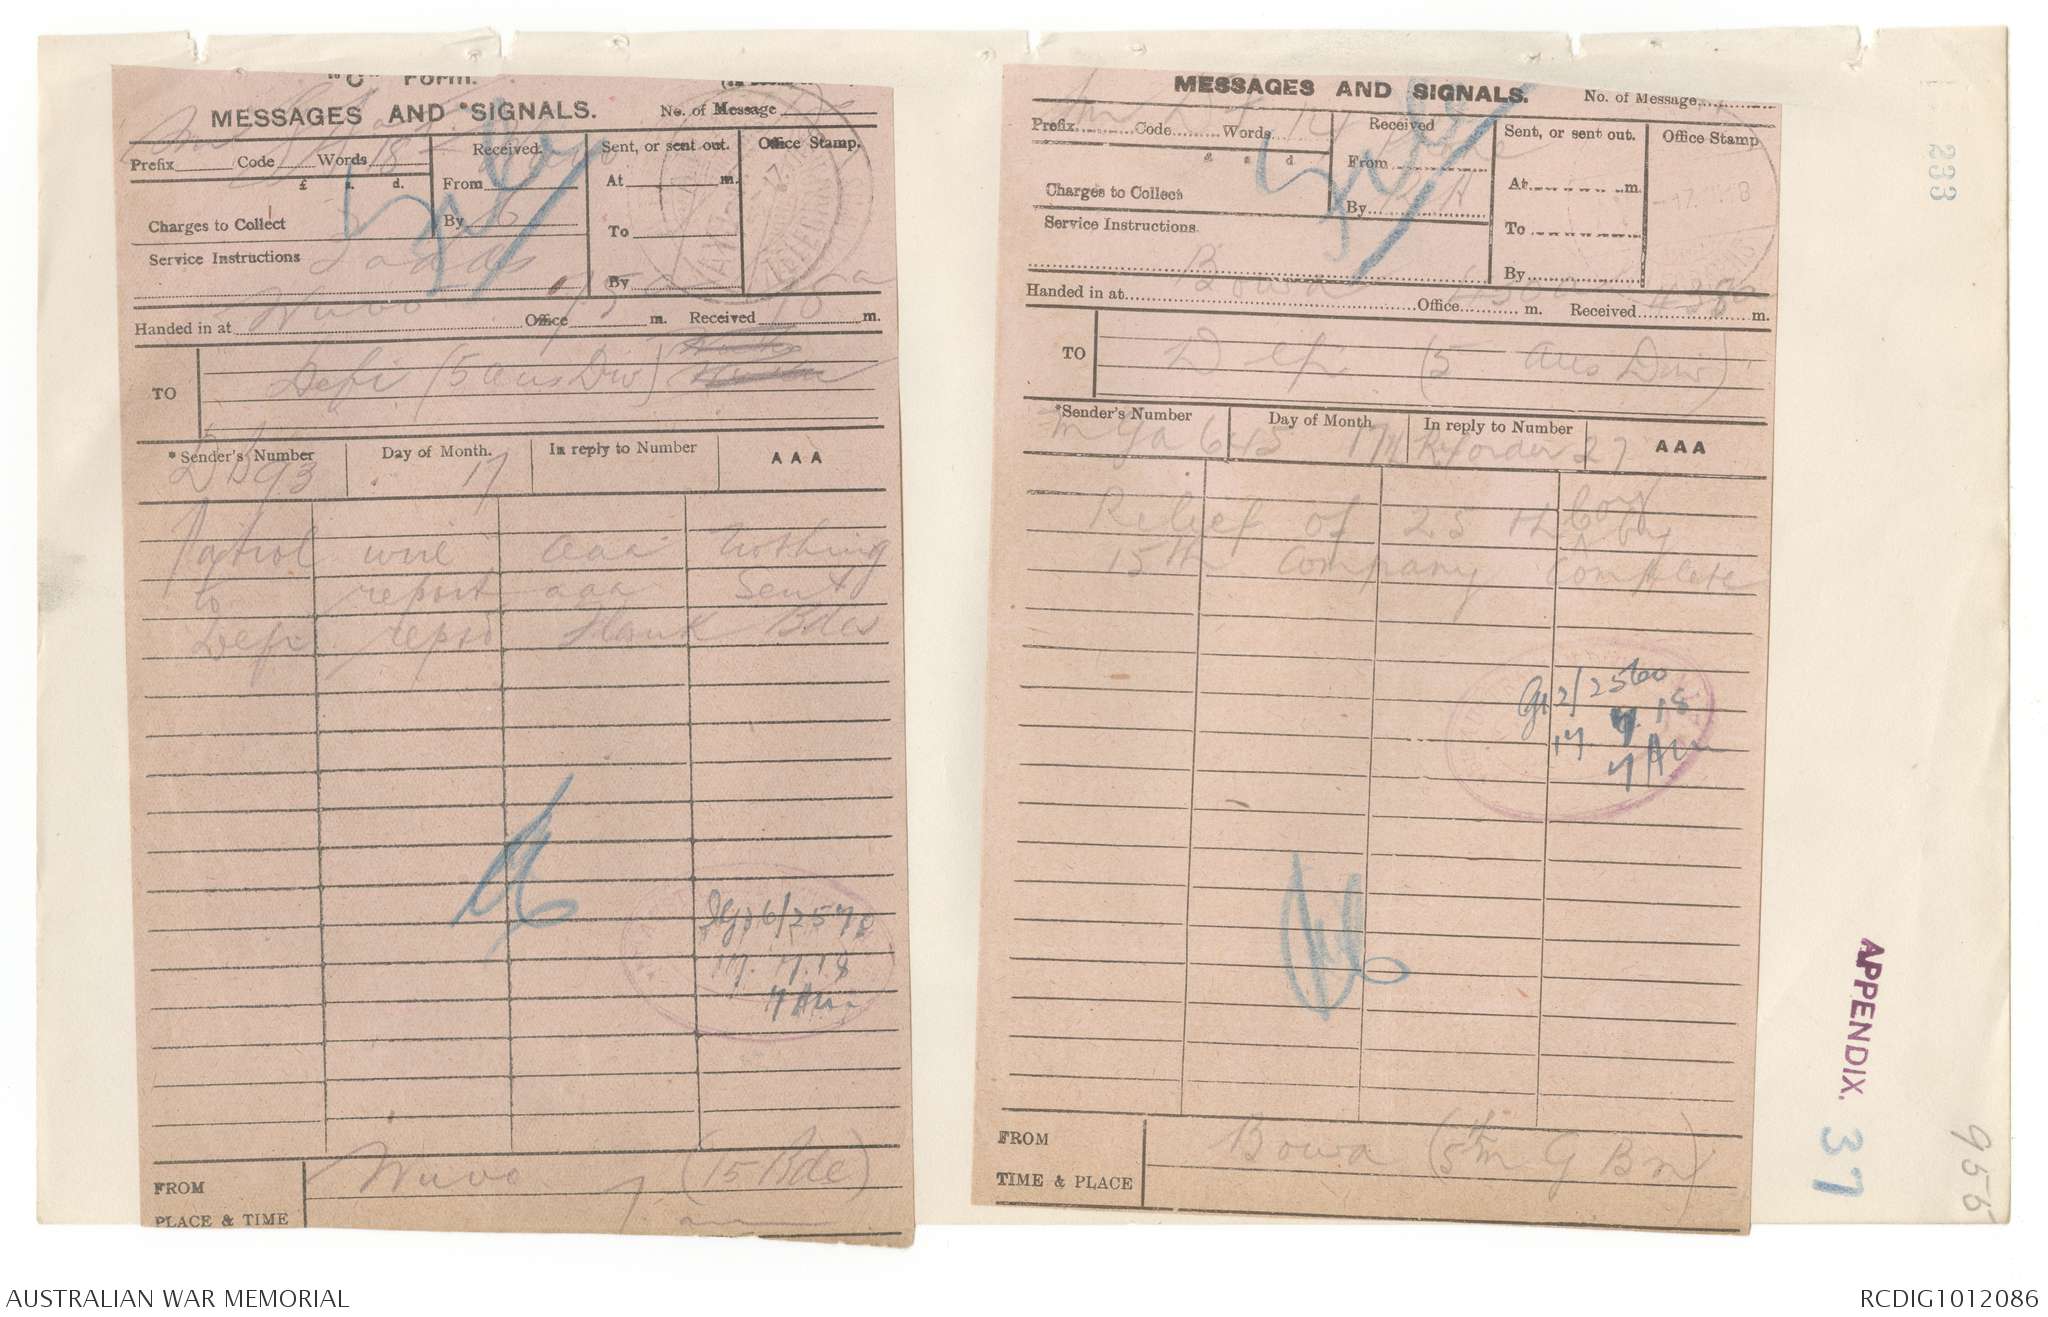 "C" Form.
MESSAGES AND SIGNALS.
No. of Message
Prefix Code Words 18
£ s. d.
Charges to Collect
Service Instructions
Received.
From
By
Sent, or sent out.
At m.
To
By
Office Stamp.
Handed in at Wuvo Office m. Received m.
TO
Defi (5 Aus Div)
*Sender's Number
Day of Month.
In reply to Number
AAA
17
Patrol wire aaa nothing
to report aaa Sent
Defi reptd flank Bdes
6/2570
17.7.18
7 AM
FROM Wuvo (15 Bde)
PLACE & TIME
MESSAGES AND SIGNALS.
No. of Message
Prefix Code Words
£ s d
Charges to Collect
Service Instructions.
Received
From
By
Sent, or sent out.
At m.
To
By
Office Stamp
-17.7.18
Handed in at Bowa Office m. Received m.
TO
Defi (5 Aus Div)
*Sender's Number
Day of Month
In reply to Number
AAA
645 17th Ry order 27
Relief of 25th Coy by
15th Company Complete
2/2560
17.7.18
7 AM
FROM Bowa (5th M G Bn)
TIME & PLACE
233
APPENDIX.
37
955
AUSTRALIAN WAR MEMORIAL
RCDIG1012086